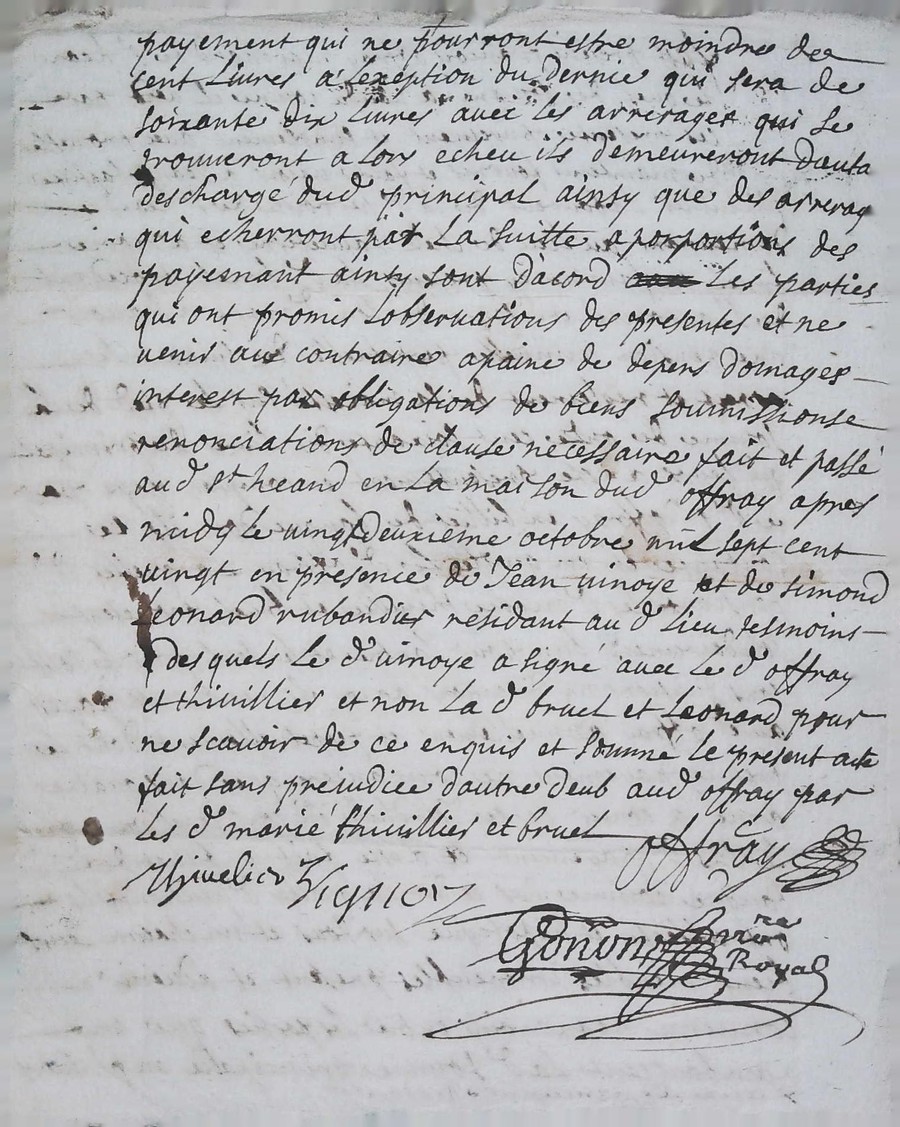 payement qui ne pourront estre moindre de
Cent Livres a Lexeption du dernie qui sera de
soixante dix Livres avec les arrerages qui se
trouveront a lors echeu ils demeureront dauta
deschargé dud principal ainsy que des arrerag
qui echerront par La suitte a porportions des
payemant ainsy sont dacord Les parties
qui ont promis Lobservations des presentes et ne
venir au contraire apaine de depens domages
interest par obligations de biens soumissions
renonciations de clause necessaire fait et passé
aud st heand en La maison dud offray apres
midy Le vingtdeuxieme octobre mil sept cent
vingt en presence de Jean vinoye et de simond
Leonard rubandier residant au d Lieu tesmoins
desquels Le d vinoye a signé avec Le d offray
et thivillier et non La d bruel et Leonard pour
ne scavoir de ce enquis et sommé Le present acte
fait sans prejudice dautre deub aud offray par
Les d marié thivillier et bruel offray
Thivelier
Gonon nre
Royal